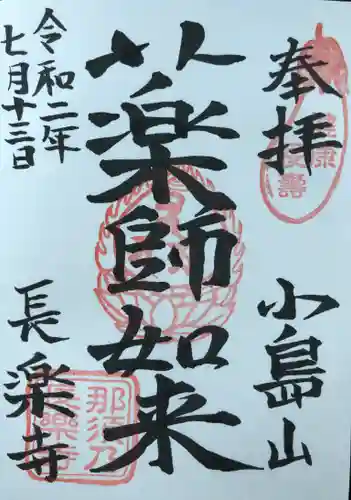 奉拝
小島山
薬師如来
令和二年
七月十三日
長楽寺
那須乃
長樂寺